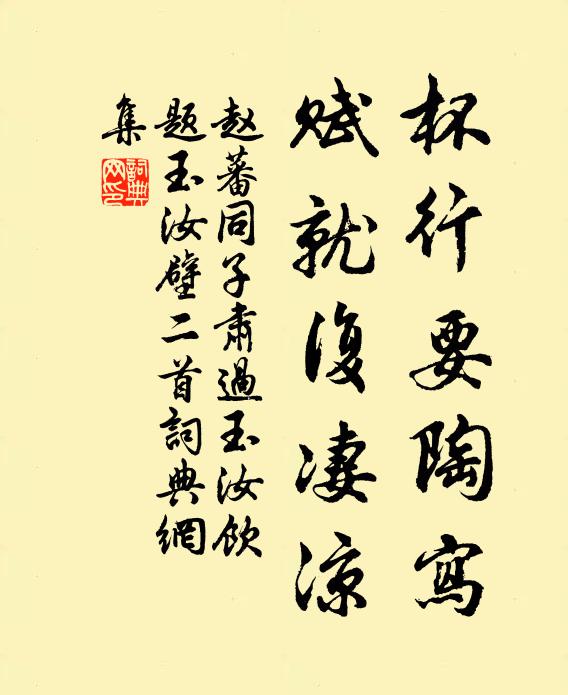 杯行要陶寫
賦就復凄涼
赵蕃同子肅過玉汝飲
題玉汝壁二首詞典網
集
詞典
网印